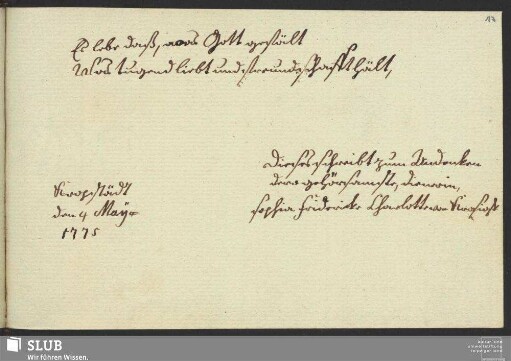 13
Es lebe daß, was Gott gefält
Was tugend liebt und freundschafft hält,
Dieses schreibt zum Andencken
dero gehorsamste, dienerin,
Sophia Friderike Charlotte von
Kropstädt
den 4 May
1775
SLUB
Wir führen Wissen.